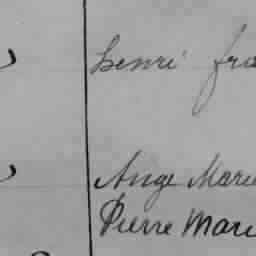 henri fra
Ange Marie
Pierre Mari